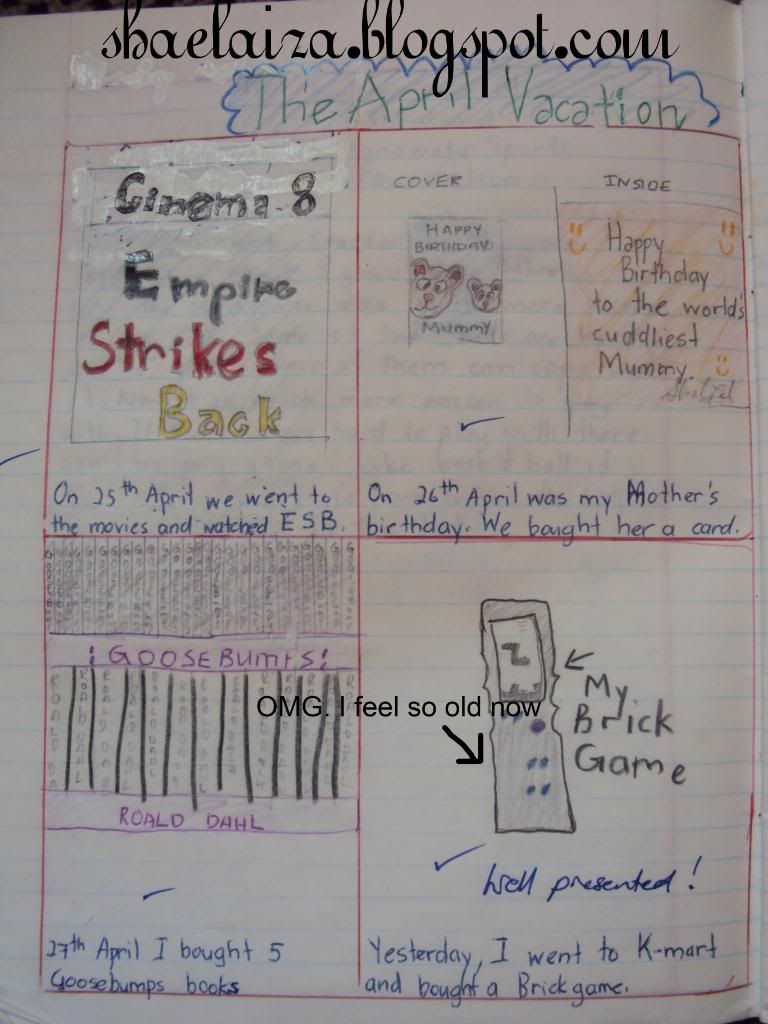 shaelaiza.blogspot.com
The April Vacation
Cinema-8
Empire
Strikes
Back
On 25th April we went to
the movies and watched ESB.
COVER
INSIDE
HAPPY
BIRTHDAY
Mummy
Happy
Birthday
to the world's
cuddliest
Mummy.
On 26th April was my Mother's
birthday. We bought her a card.
GOOSEBUMPS!
ROALD DAHL
27th April I bought 5
Goosebumps books
OMG. I feel so old now
My
Brick
Game
Well presented!
Yesterday, I went to K-mart
and bought a Brickgame.